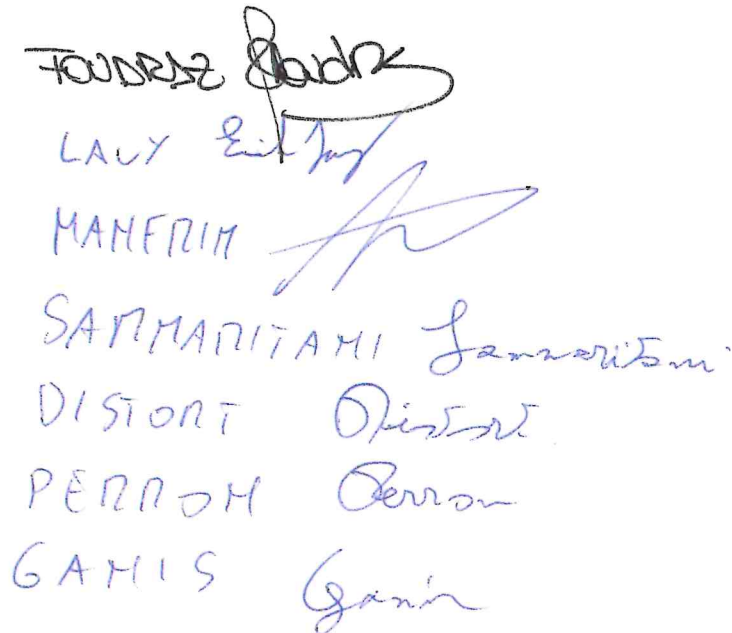 FOUDRAZ
LAVY
MANFRIN
SAMMARITANI Sammaritani
DISTORT Distort
PERRON Perron
GANIS Ganis